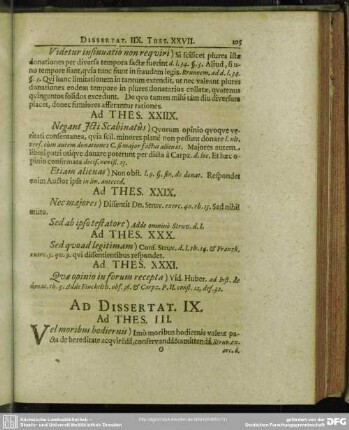 DISSERTAT. IIX. THET. XXVII. 105
Videtur insinuatio non requiri) Si scilicet plures istæ
donationes per diversa tempora factæ fuerint d. l. 34. §. 3. Aliud, si u-
no tempore fiant, quia tunc fiunt in fraudem legis. Brunnem. ad d. l. 34.
§. 3. Qui hanc limitationem in tantum extendit, ut nec valeant plures
donationes eodem tempore in plures donatarios collatæ, quatenus
quingentos solidos excedunt. De quo tamen mihi tam diu diversum
placet, donec fundiores afferantur rationes.
Ad THES. XXIIX.
Negant JCti Scabinatûs) Quorum opinio quoqve ve-
ritati consentanea, quia scil. minores planè non possunt donare l. ult.
verf. eum autem donationes C. si major factus alienat. Majores autem
liboni pati utique donare poterunt per dicta à Carpz. d. loc. Et hæc o-
pinio confirmata decis. noviss. 17.
Etiam alienas) Non obst. l. 9. §. fin. de donat. Respondet
enim Auctor ipse in lin. anteced.
Ad THES. XXIX.
Nec majores) Dissentit Dn. Struv. exerc. 40. th. 17. Sed nihil
muto.
Sed ab ipso testatore) Adde omninò Struv. d. l.
Ad THES. XXX.
Sed quoad legitimam) Conf. Struv. d. l. th. 14. & Frantzk.
exerc. 5. qu. 9. qui dissentientibus respondet.
Ad THES. XXXI.
Quæ opinio in forum recepta) Vid. Huber. ad Inst. de
donat. th. 5. Adde Finckelth. obs. 58. & Carpz. P. II. const. 12. def. 32.
AD DISSERTAT. IX.
Ad THES. III.
Vel moribus hodiernis) Imò moribus hodiernis valent pa-
cta de hereditate acquirenda, conservanda & amittenda. Struv. ex-
O
erc. 6.
Sächsische Landesbibliothek -
Staats- und Universitätsbibliothek Dresden
gefördert von der
Deutschen Forschungsgemeinschaft
DFG